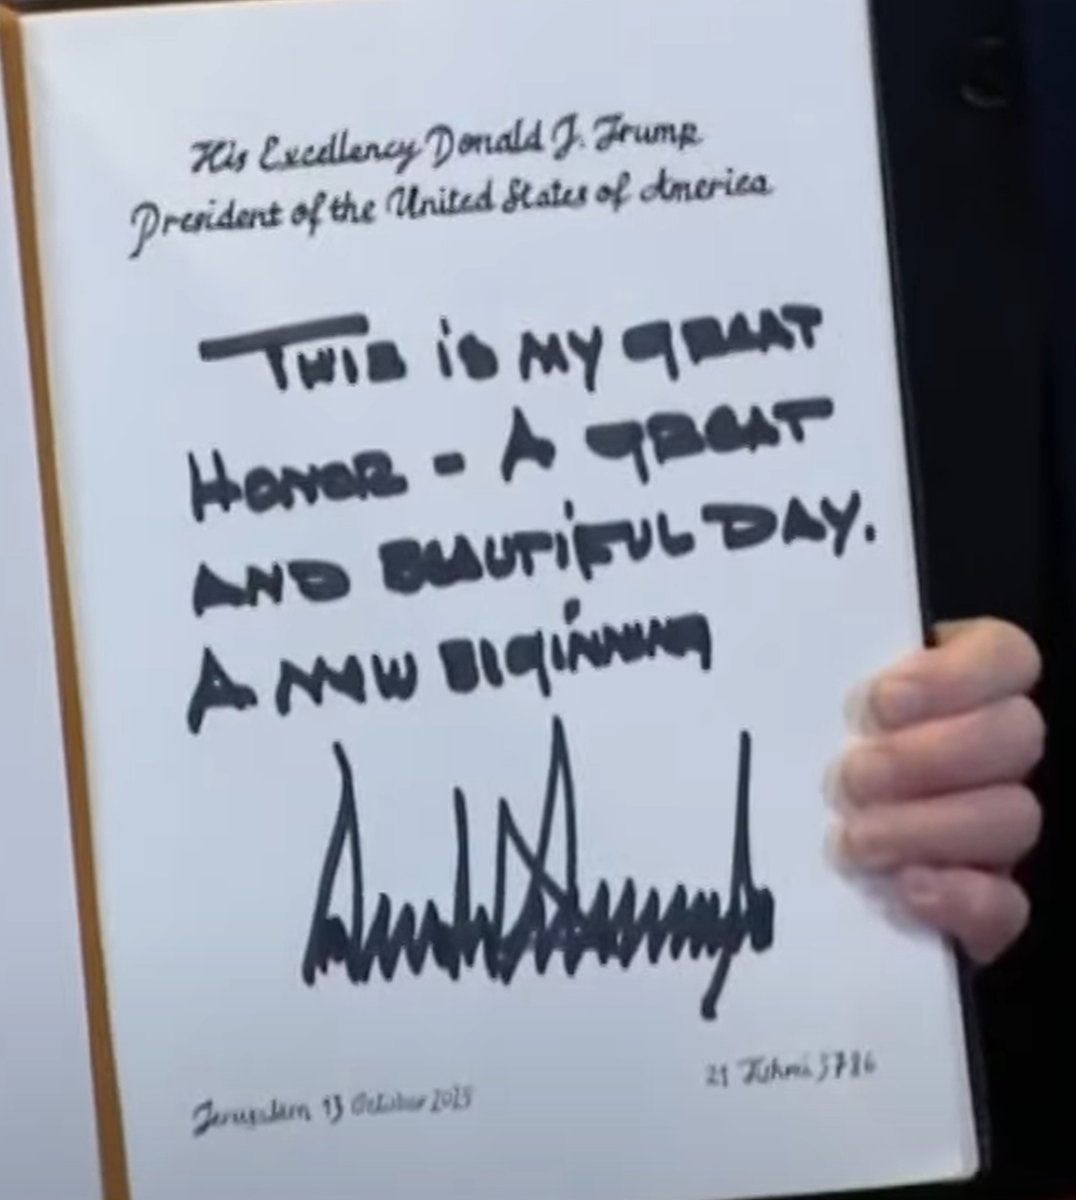 His Excellency Donald J. Trump
President of the United States of America
THIS is MY GREAT
HONOR - A GREAT
AND BEAUTIFUL DAY.
A NEW BEGINNING
Jerusalem 13 October 2025
21 Tishrei 5786